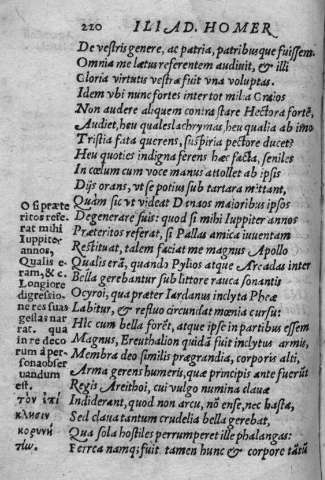 220 ILIAD. HOMER
De vestris genere, ac patria, patribusque fuissem.
Omnia me lætus referentem audiuit, & illi
Gloria virtutis vestræ fuit vna voluptas.
Idem vbi nunc fortes inter tot milia Graios
Non audere aliquem contra stare Hectora fortẽ,
Audiet, heu quales lachrymas, heu qualia ab imo
Tristia fata querens, suspiria pectore ducet?
Heu quoties indigna ferens hæc facta, seniles
In cœlum cum voce manus attollet ab ipsis
Dijs orans, vt se potius sub tartara mittant,
Quàm sic vt videat Danaos maioribus ipsos
Degenerare suis: quod si mihi Iuppiter annos
Præteritos referat, si Pallas amica iuuentam
Restituat, talem faciat me magnus Apollo
Qualis erã, quando Pylios atque Arcadas inter
Bella gerebantur sub littore rauca sonantis
Ocyroi, qua præter Iardanus inclyta Pheæ
Labitur, & refluo circundat mœnia cursu:
Hîc cum bella forẽt, atque ipse in partibus essem
Magnus, Ereuthalion quidã fuit inclytus armis,
Membra deo similis prægrandia, corporis alti,
Arma gerens humeris, quæ principis ante fuerũt
Regis Areithoi, cui vulgo numina clauæ
Indiderant, quod non arcu, nõ ense, nec hasta,
Sed claua tantum crudelia bella gerebat,
Qua sola hostiles perrumperet ille phalangas:
Ferrea namq; fuit. tamen hunc & corpore tãtũ
O si præte
ritos refe-
rat mihi
Iuppiter
annos,
Qualis e-
ram, & c.
Longiore
digressio-
ne res suas
gestas nar
rat. qua
in re deco
rum à per-
sona obser
uandum
est.
τὸν ἐπί
κλησιν
κορυνή
τlω.